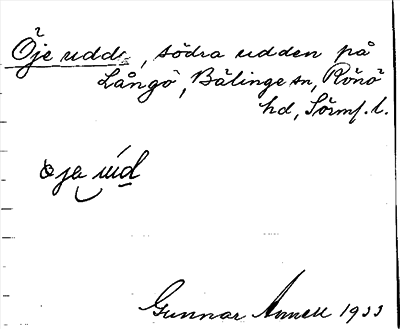 Öje udde, södra udden på
Långö, Bälinge sn, Rönö
hd, Sörml. l.
øja ùd
Gunnar Annell 1933